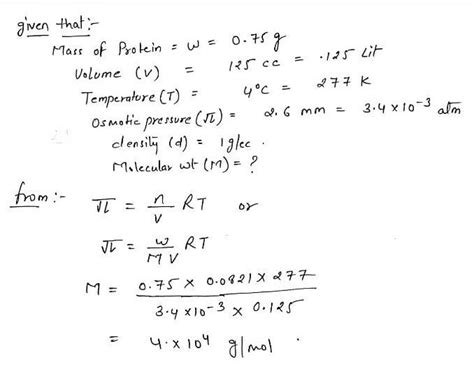 given that:-
Mass of Protein = w = 0.75 g
Volume (V) = 125 cc = .125 Lit
Temperature (T) = 4°C = 277 K
Osmotic pressure (π) = 2.6 mm = 3.4×10⁻³ atm
density (d) = 1 g/cc.
Molecular wt (M) = ?
from:- π = n/V RT or
π = w/MV RT
M = 0.75 × 0.0821 × 277 / 3.4×10⁻³ × 0.125
= 4.×10⁴ g/mol.